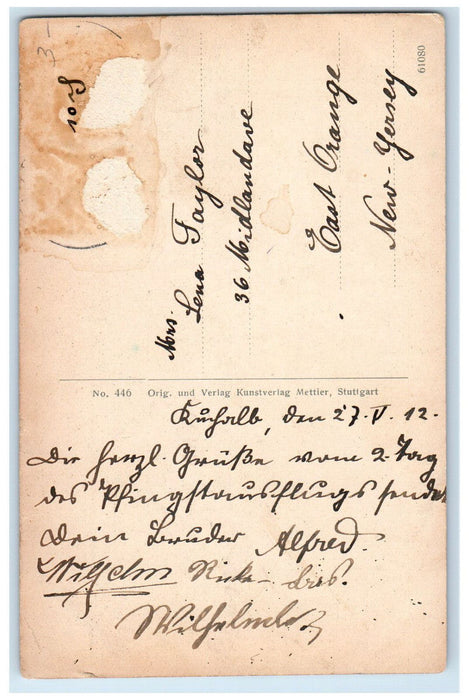 3-
10 S
61080
Mrs.
Lena Taylor
36 Midlandave
East Orange
New-Yersey
No. 446 Orig. und Verlag Kunstverlag Mettier, Stuttgart
Kuchalb, den 27. V. 12.
Die herzl. Grüße vom 2. Tag
des Pfingstausflugs sendet
Dein Bruder Alfred.
Wilhelm Rieke